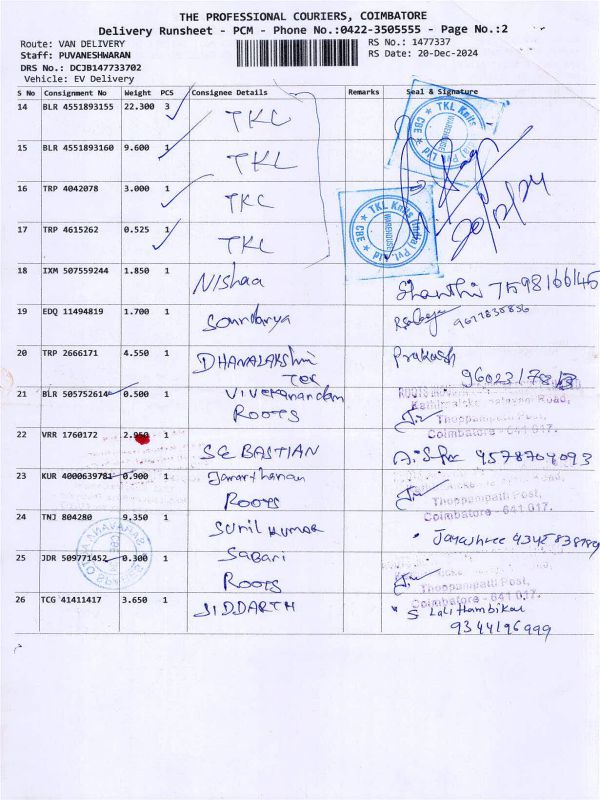 THE PROFESSIONAL COURIERS, COIMBATORE
Delivery Runsheet - PCM - Phone No.:0422-3505555 - Page No.:2
Route: VAN DELIVERY
RS No.: 1477337
Staff: PUVANESHWARAN
RS Date: 20-Dec-2024
DRS No.: DCJB147733702
Vehicle: EV Delivery
S No Consignment No Weight PCS Consignee Details Remarks Seal & Signature
14 BLR 4551893155 22.300 3 TKL
15 BLR 4551893160 9.600 1 TKL
16 TRP 4042078 3.000 1 TKL
17 TRP 4615262 0.525 1 TKL
TKL Knits (India) Pvt. Ltd
WAREHOUSE
CBE
20/12/24
TKL Knits (India) Pvt. Ltd
WAREHOUSE
CBE
18 IXM 507559244 1.850 1 Nishaa Shanthi
19 EDQ 11494819 1.700 1 Soundarya
20 TRP 2666171 4.550 1 DHANALAKShmi Prakash
Tex
21 BLR 505752614 0.500 1 Vivekanandam
ROOTS
Thoppampatti Post,
Coimbatore - 641 017.
22 VRR 1760172 2.950 1 SEBASTIAN
23 KUR 4000639781 0.900 1 Janarthanan
ROOTS
Thoppampatti Post,
Coimbatore - 641 017.
24 TNJ 804280 9.350 1 Sunil Kumar Jayashree
25 JDR 509771452 0.300 1 Sabari
ROOTS
Thoppampatti Post,
Coimbatore - 641 017.
26 TCG 41411417 3.650 1 SIDDARTH S Lalithambikai
9344196999